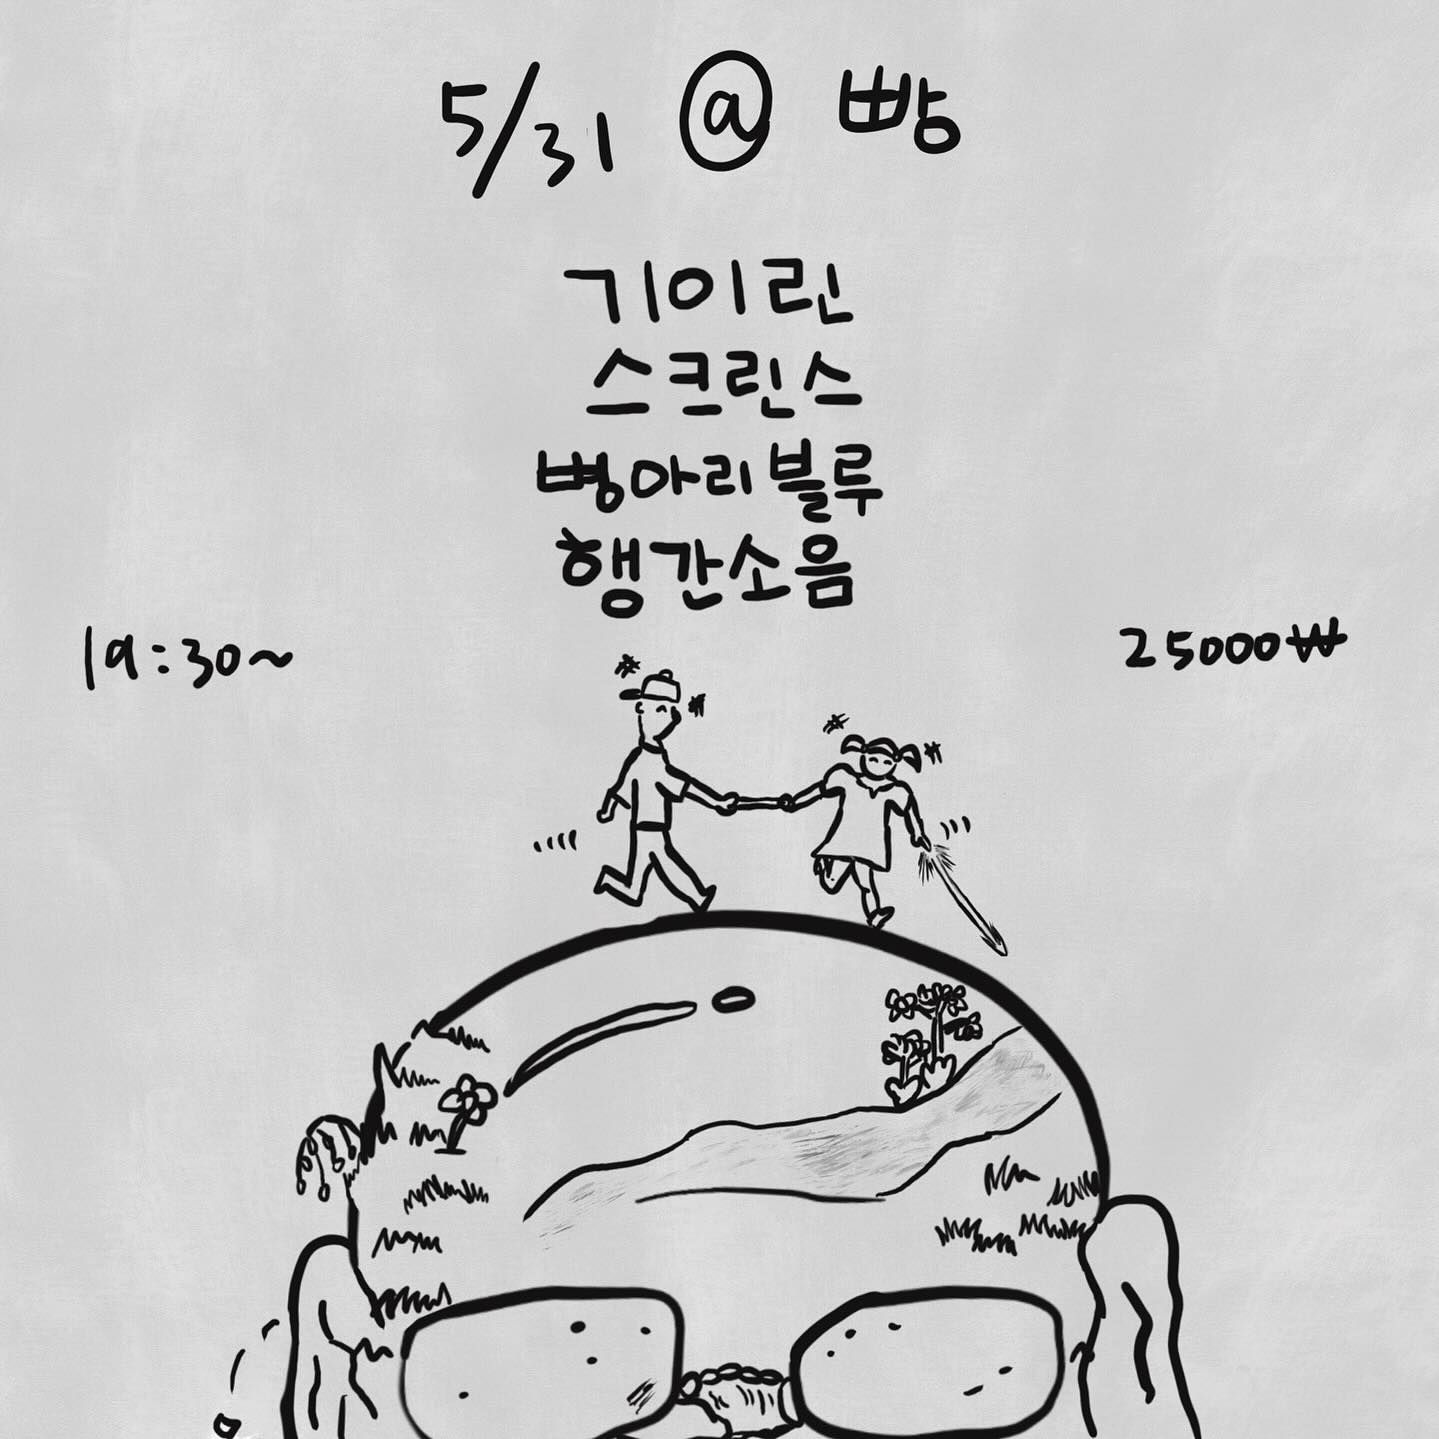 5/31 @ 빵
기이린
스크린스
뼝아리블루
행간소음
19:30~
25000₩